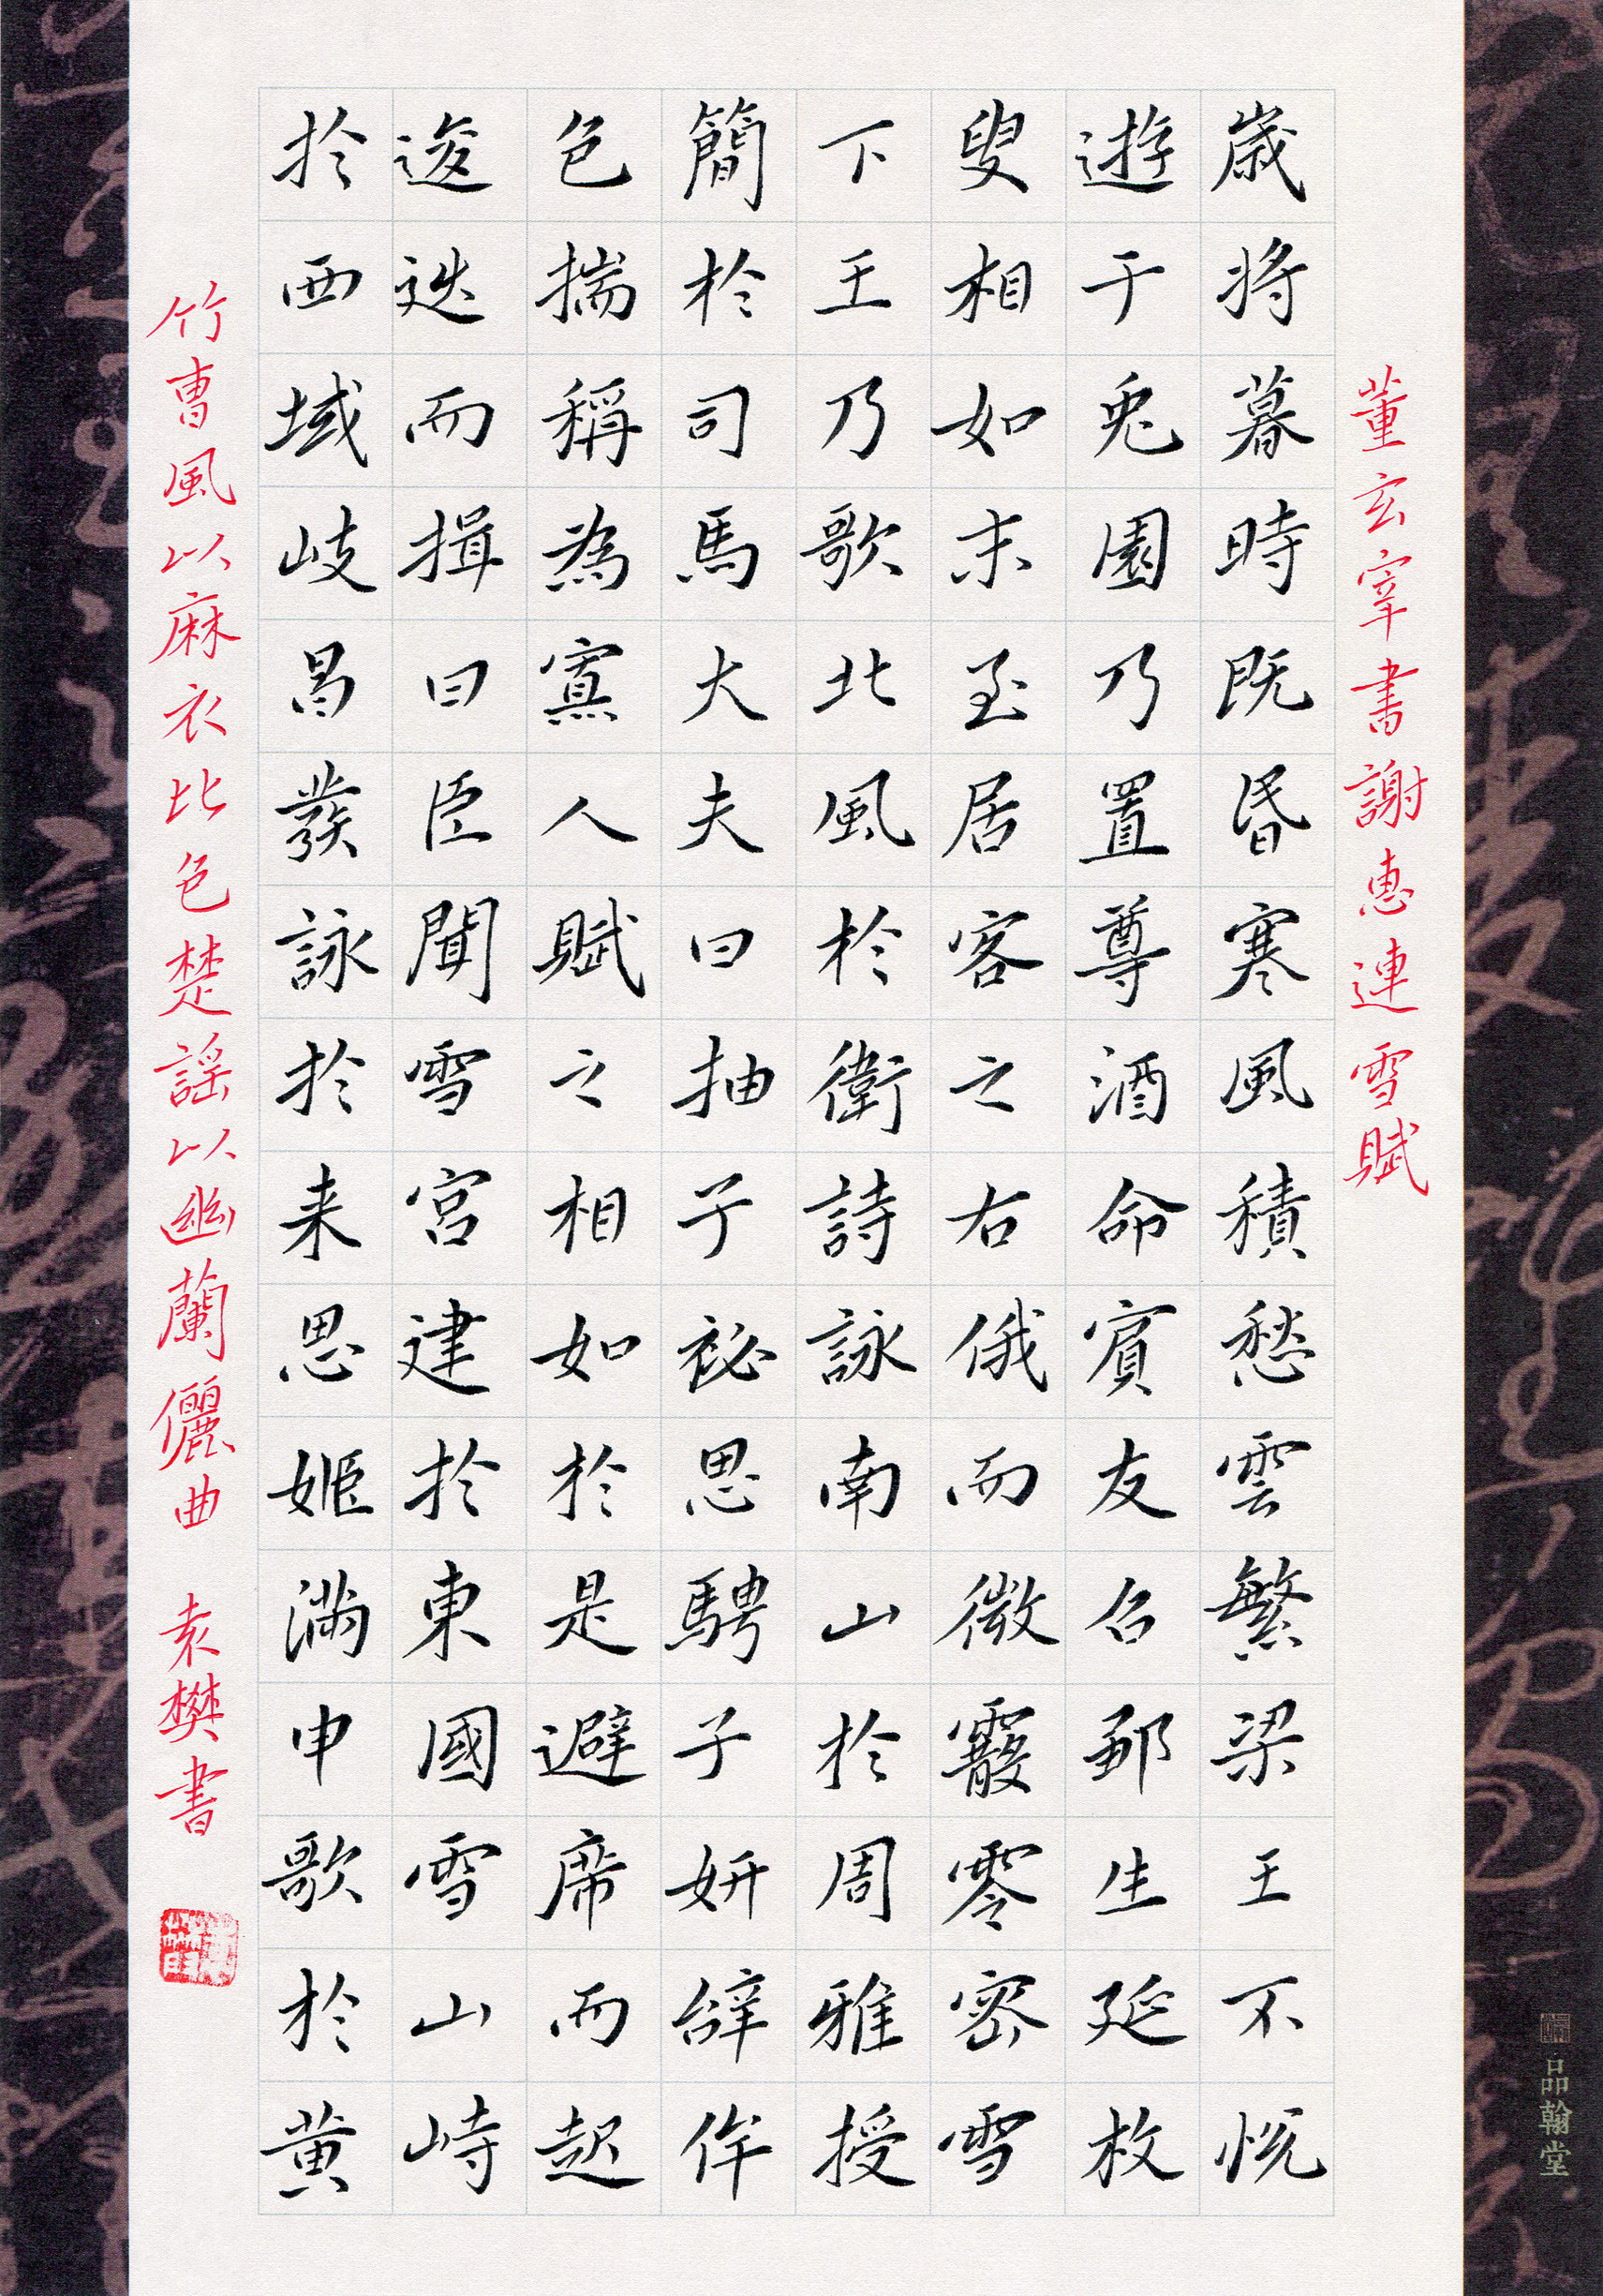 董玄宰書謝惠連雪賦
歳將暮時既昏寒風積愁雲繁梁王不悦
遊于兎園乃置尊酒命賓友召鄒生延枚
叟相如末至居客之右俄而微霰零密雪
下王乃歌北風於衛詩詠南山於周雅授
簡於司馬大夫曰抽子祕思騁子妍辭侔
色揣稱為寡人賦之相如於是避席而起
逡迯而揖曰臣聞雪宮建於東國雪山峙
於西域岐昌發詠於来思姬滿申歌於黄
竹曹風以麻衣比色楚謠以幽蘭儷曲 袁樊書
品翰堂